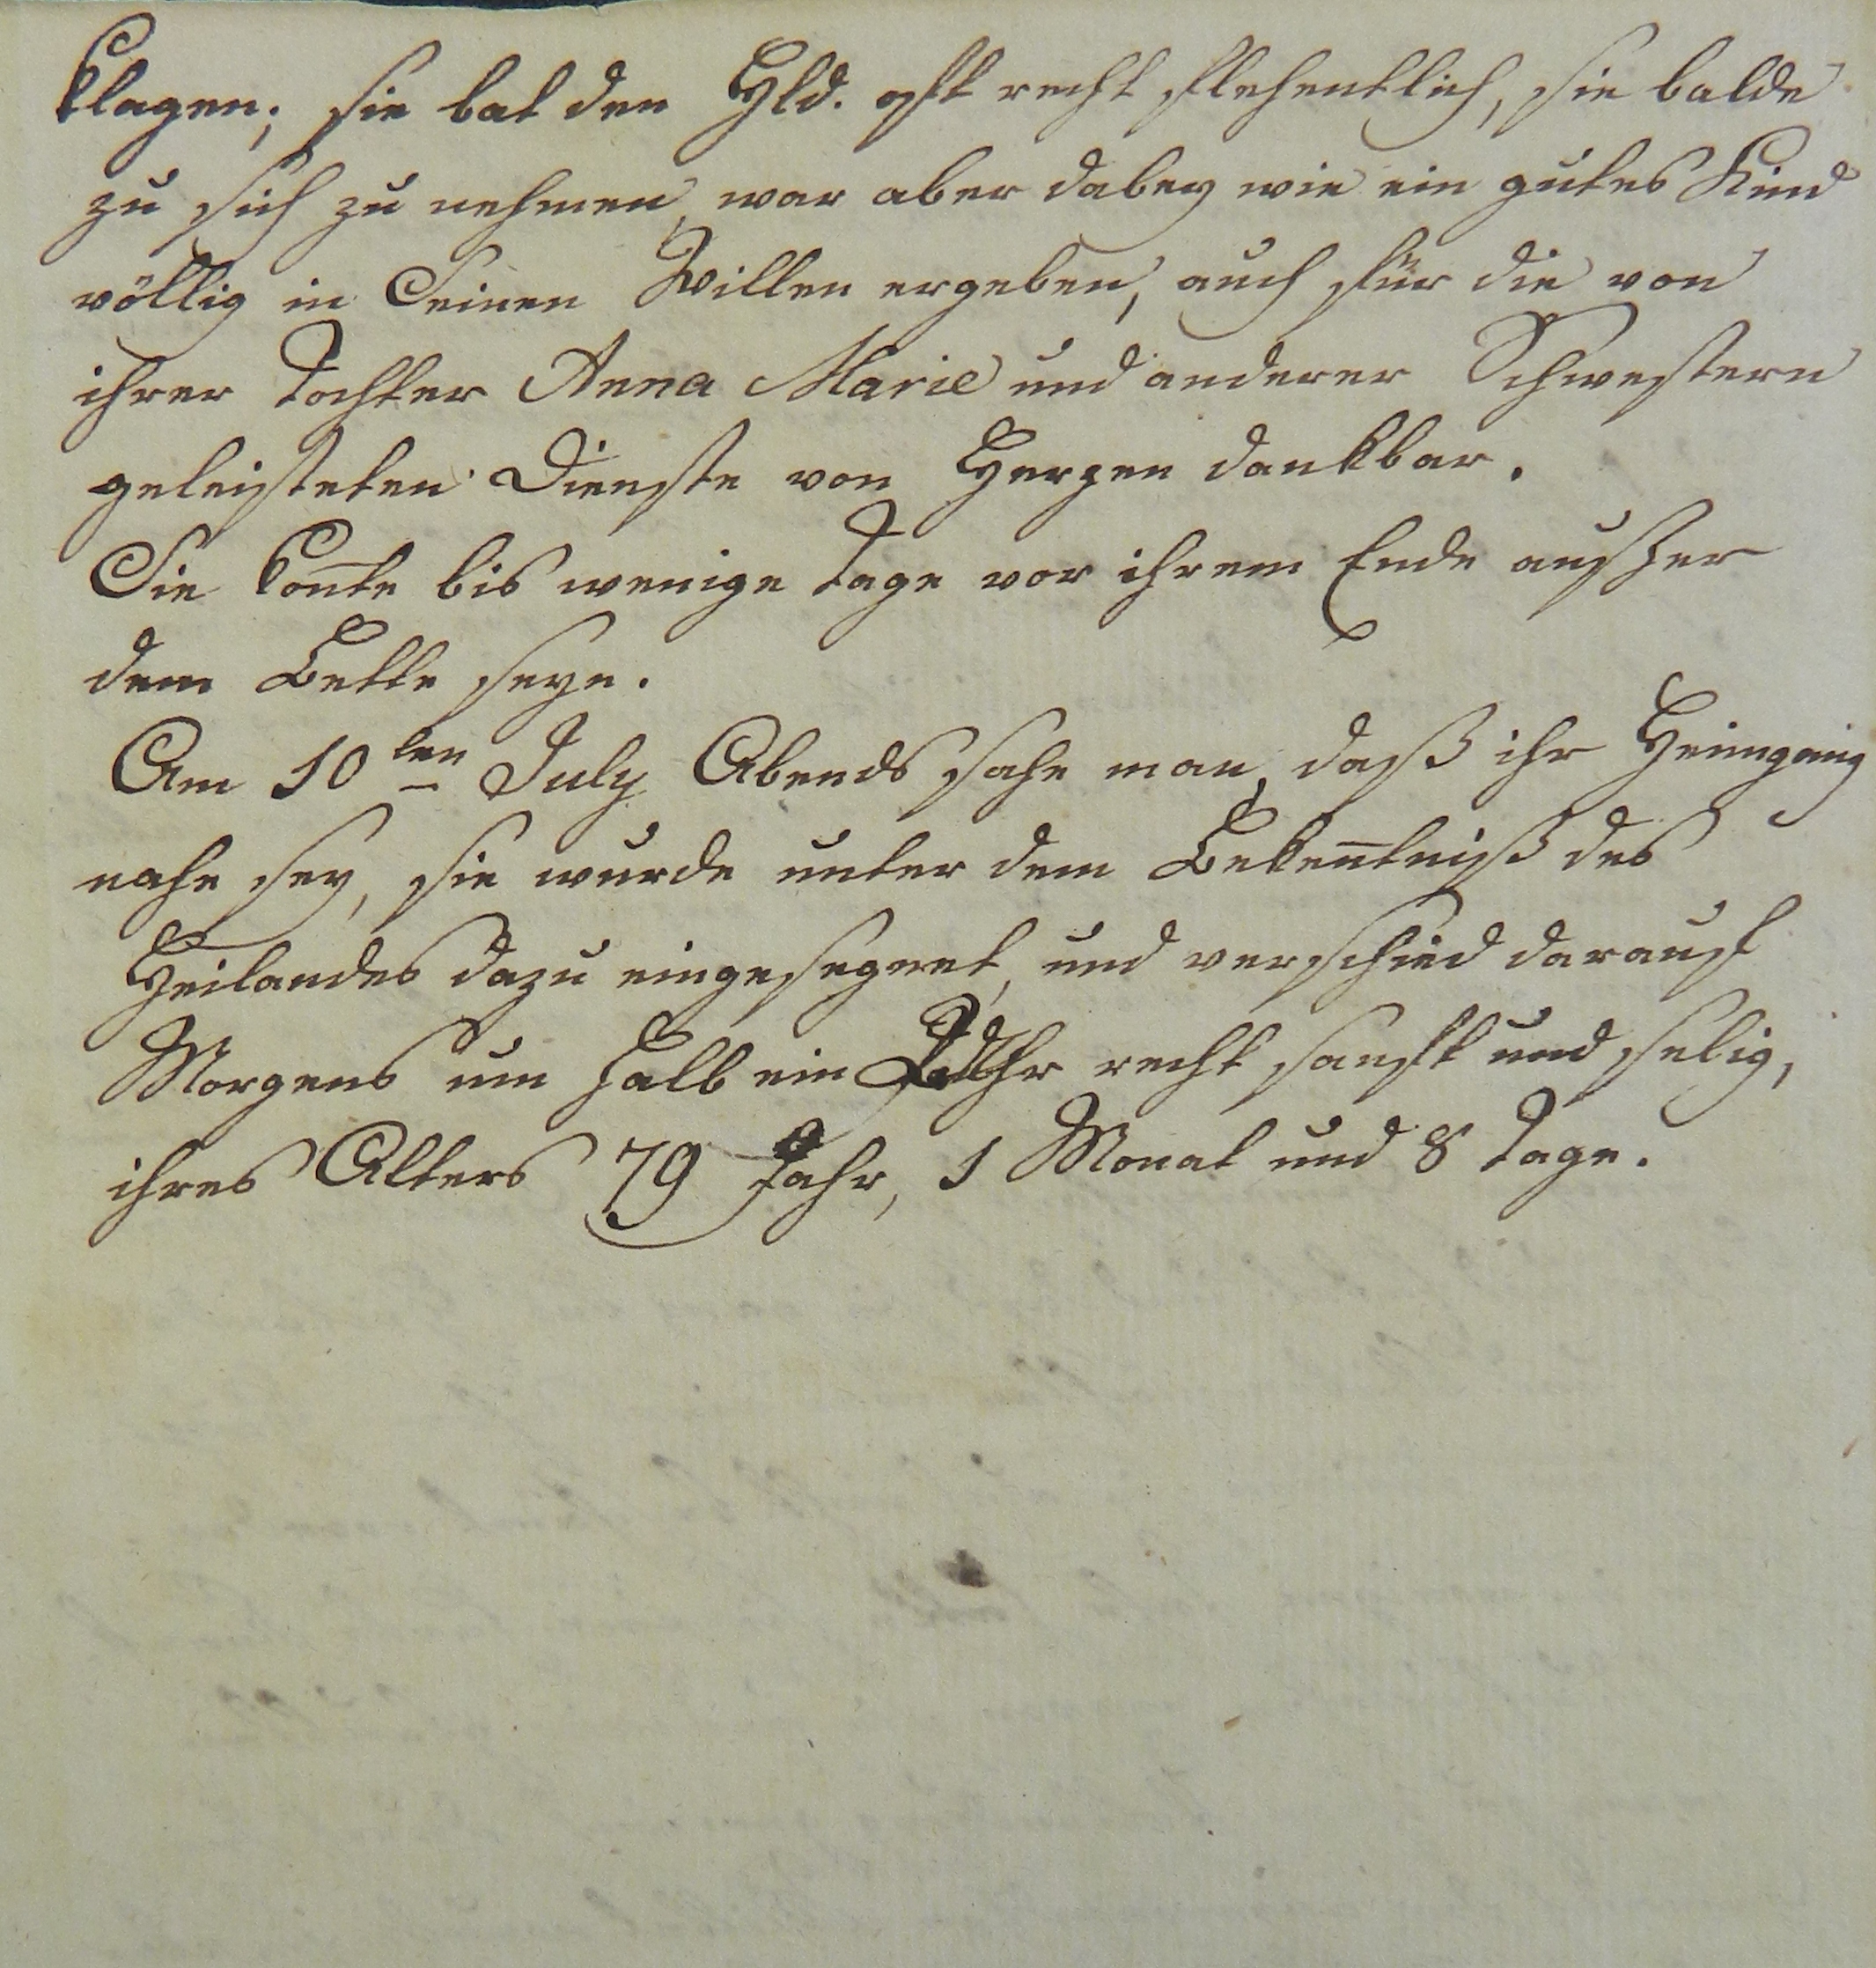 klagen; sie bat den Hld. oft recht flehentlich, sie balde
zu sich zu nehmen, war aber dabey wie ein gutes Kind
völlig in Seinen Willen ergeben, auch für die von
ihrer Tochter Anna Marie und anderer Schwestern
geleisteten Dienste von Herzen dankbar.
Sie kon̄te bis wenige Tage vor ihrem Ende ausser
dem Bette seyn.
Am 10ten July Abends sahe man, daß ihr Heimgang
nahe sey, sie wurde unter dem Beken̄tniß des
Heilandes dazu eingesegnet, und verschied darauf
Morgens um halb ein Uhr recht sanft und selig,
ihres Alters 79 Jahr, 1 Monat und 8 Tage.